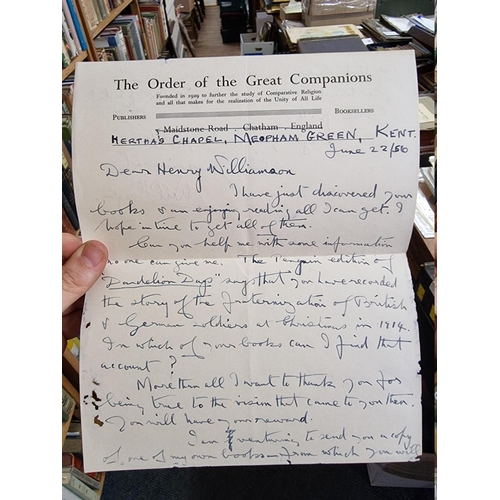 The Order of the Great Companions
Founded in 1929 to further the study of Comparative Religion
and all that makes for the realization of the Unity of All Life
PUBLISHERS BOOKSELLERS
5 Maidstone Road . Chatham . England
HERTHA'S CHAPEL, MEOPHAM GREEN, KENT.
June 22/56
Dear Henry Williamson
I have just discovered your
books & am enjoying reading all I can get. I
hope in time to get all of them.
Can you help me with some information
no one can give me. The Penguin edition of
"Dandelion Days" says that you have recorded
the story of the fraternization of British
& German soldiers at Christmas in 1914.
In which of your books can I find that
account?
More than all I want to thank you for
being true to the vision that came to you then.
You will have your reward.
I am venturing to send you a copy
of one of my own books — from which you will